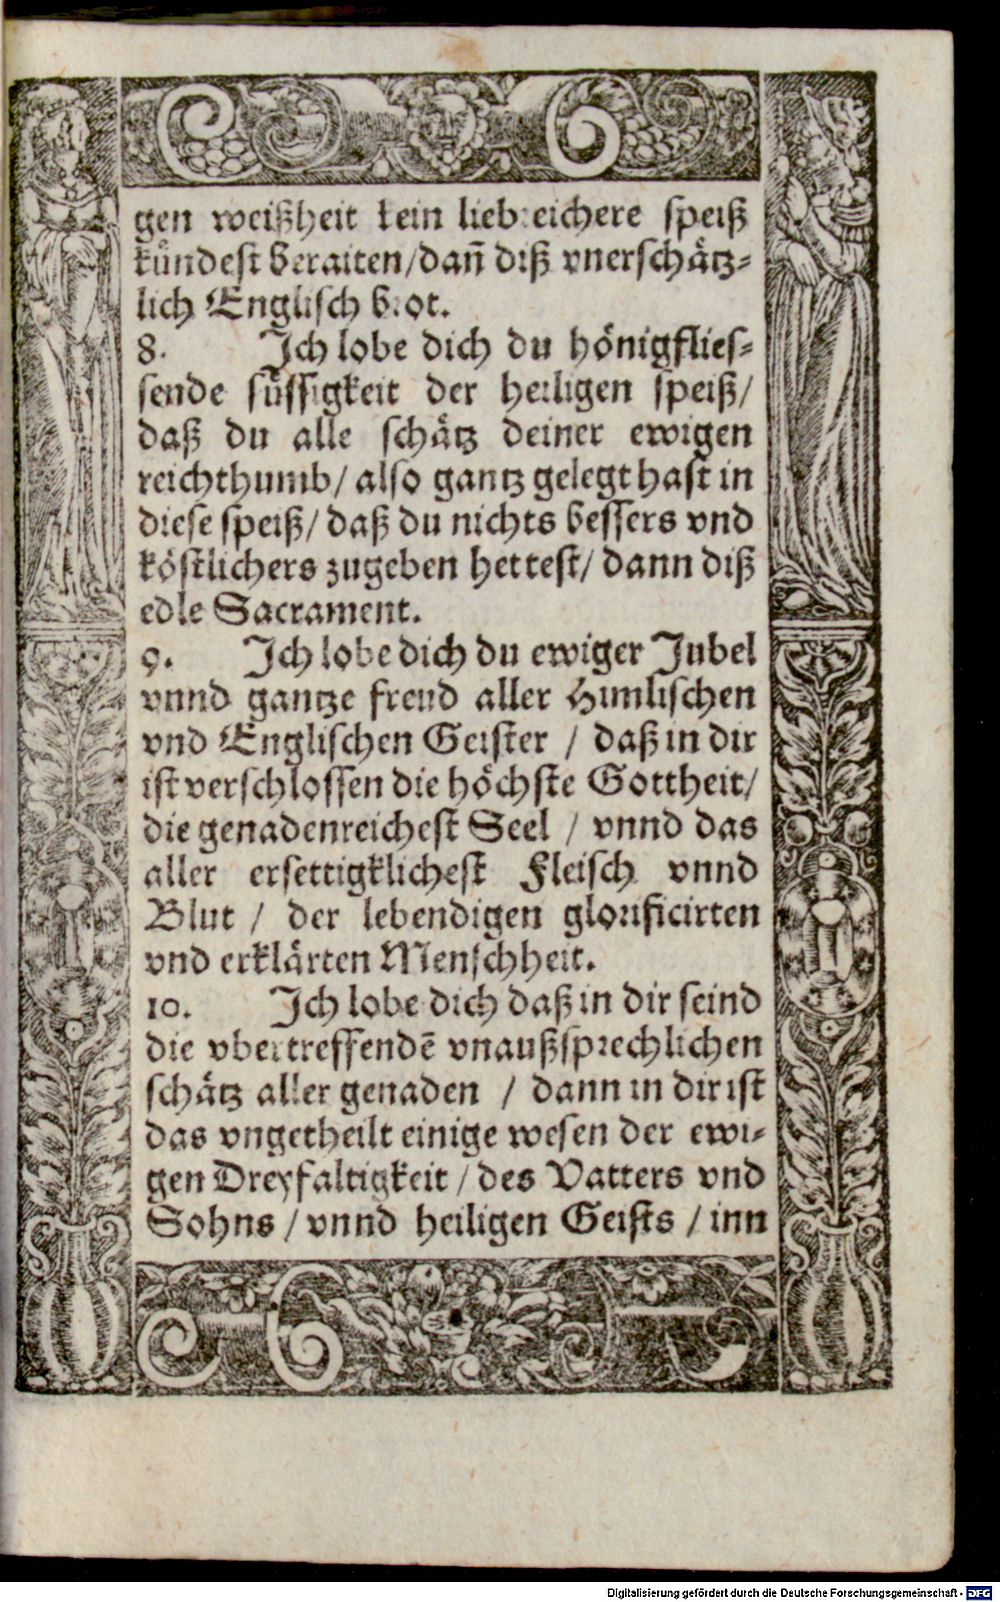 gen weißheit kein liebreichere speiß
kündest beraiten/dañ diß vnerschätz-
lich Englisch brot.
8. Ich lobe dich du hönigflies-
sende süssigkeit der heiligen speiß/
daß du alle schätz deiner ewigen
reichthumb/ also gantz gelegt hast in
diese speiß/ daß du nichts bessers vnd
köstlichers zugeben hettest/ dann diß
edle Sacrament.
9. Ich lobe dich du ewiger Jubel
vnnd gantze freud aller Himlischen
vnd Englischen Geister / daß in dir
ist verschlossen die höchste Gottheit/
die genadenreichest Seel / vnnd das
aller ersettigklichest Fleisch vnnd
Blut / der lebendigen glorificirten
vnd erklärten Menschheit.
10. Ich lobe dich daß in dir seind
die vbertreffendē vnaußsprechlichen
schätz aller genaden / dann in dir ist
das vngetheilt einige wesen der ewi-
gen Dreyfaltigkeit / des Vatters vnd
Sohns / vnnd heiligen Geists / inn
Digitalisierung gefördert durch die Deutsche Forschungsgemeinschaft - DFG